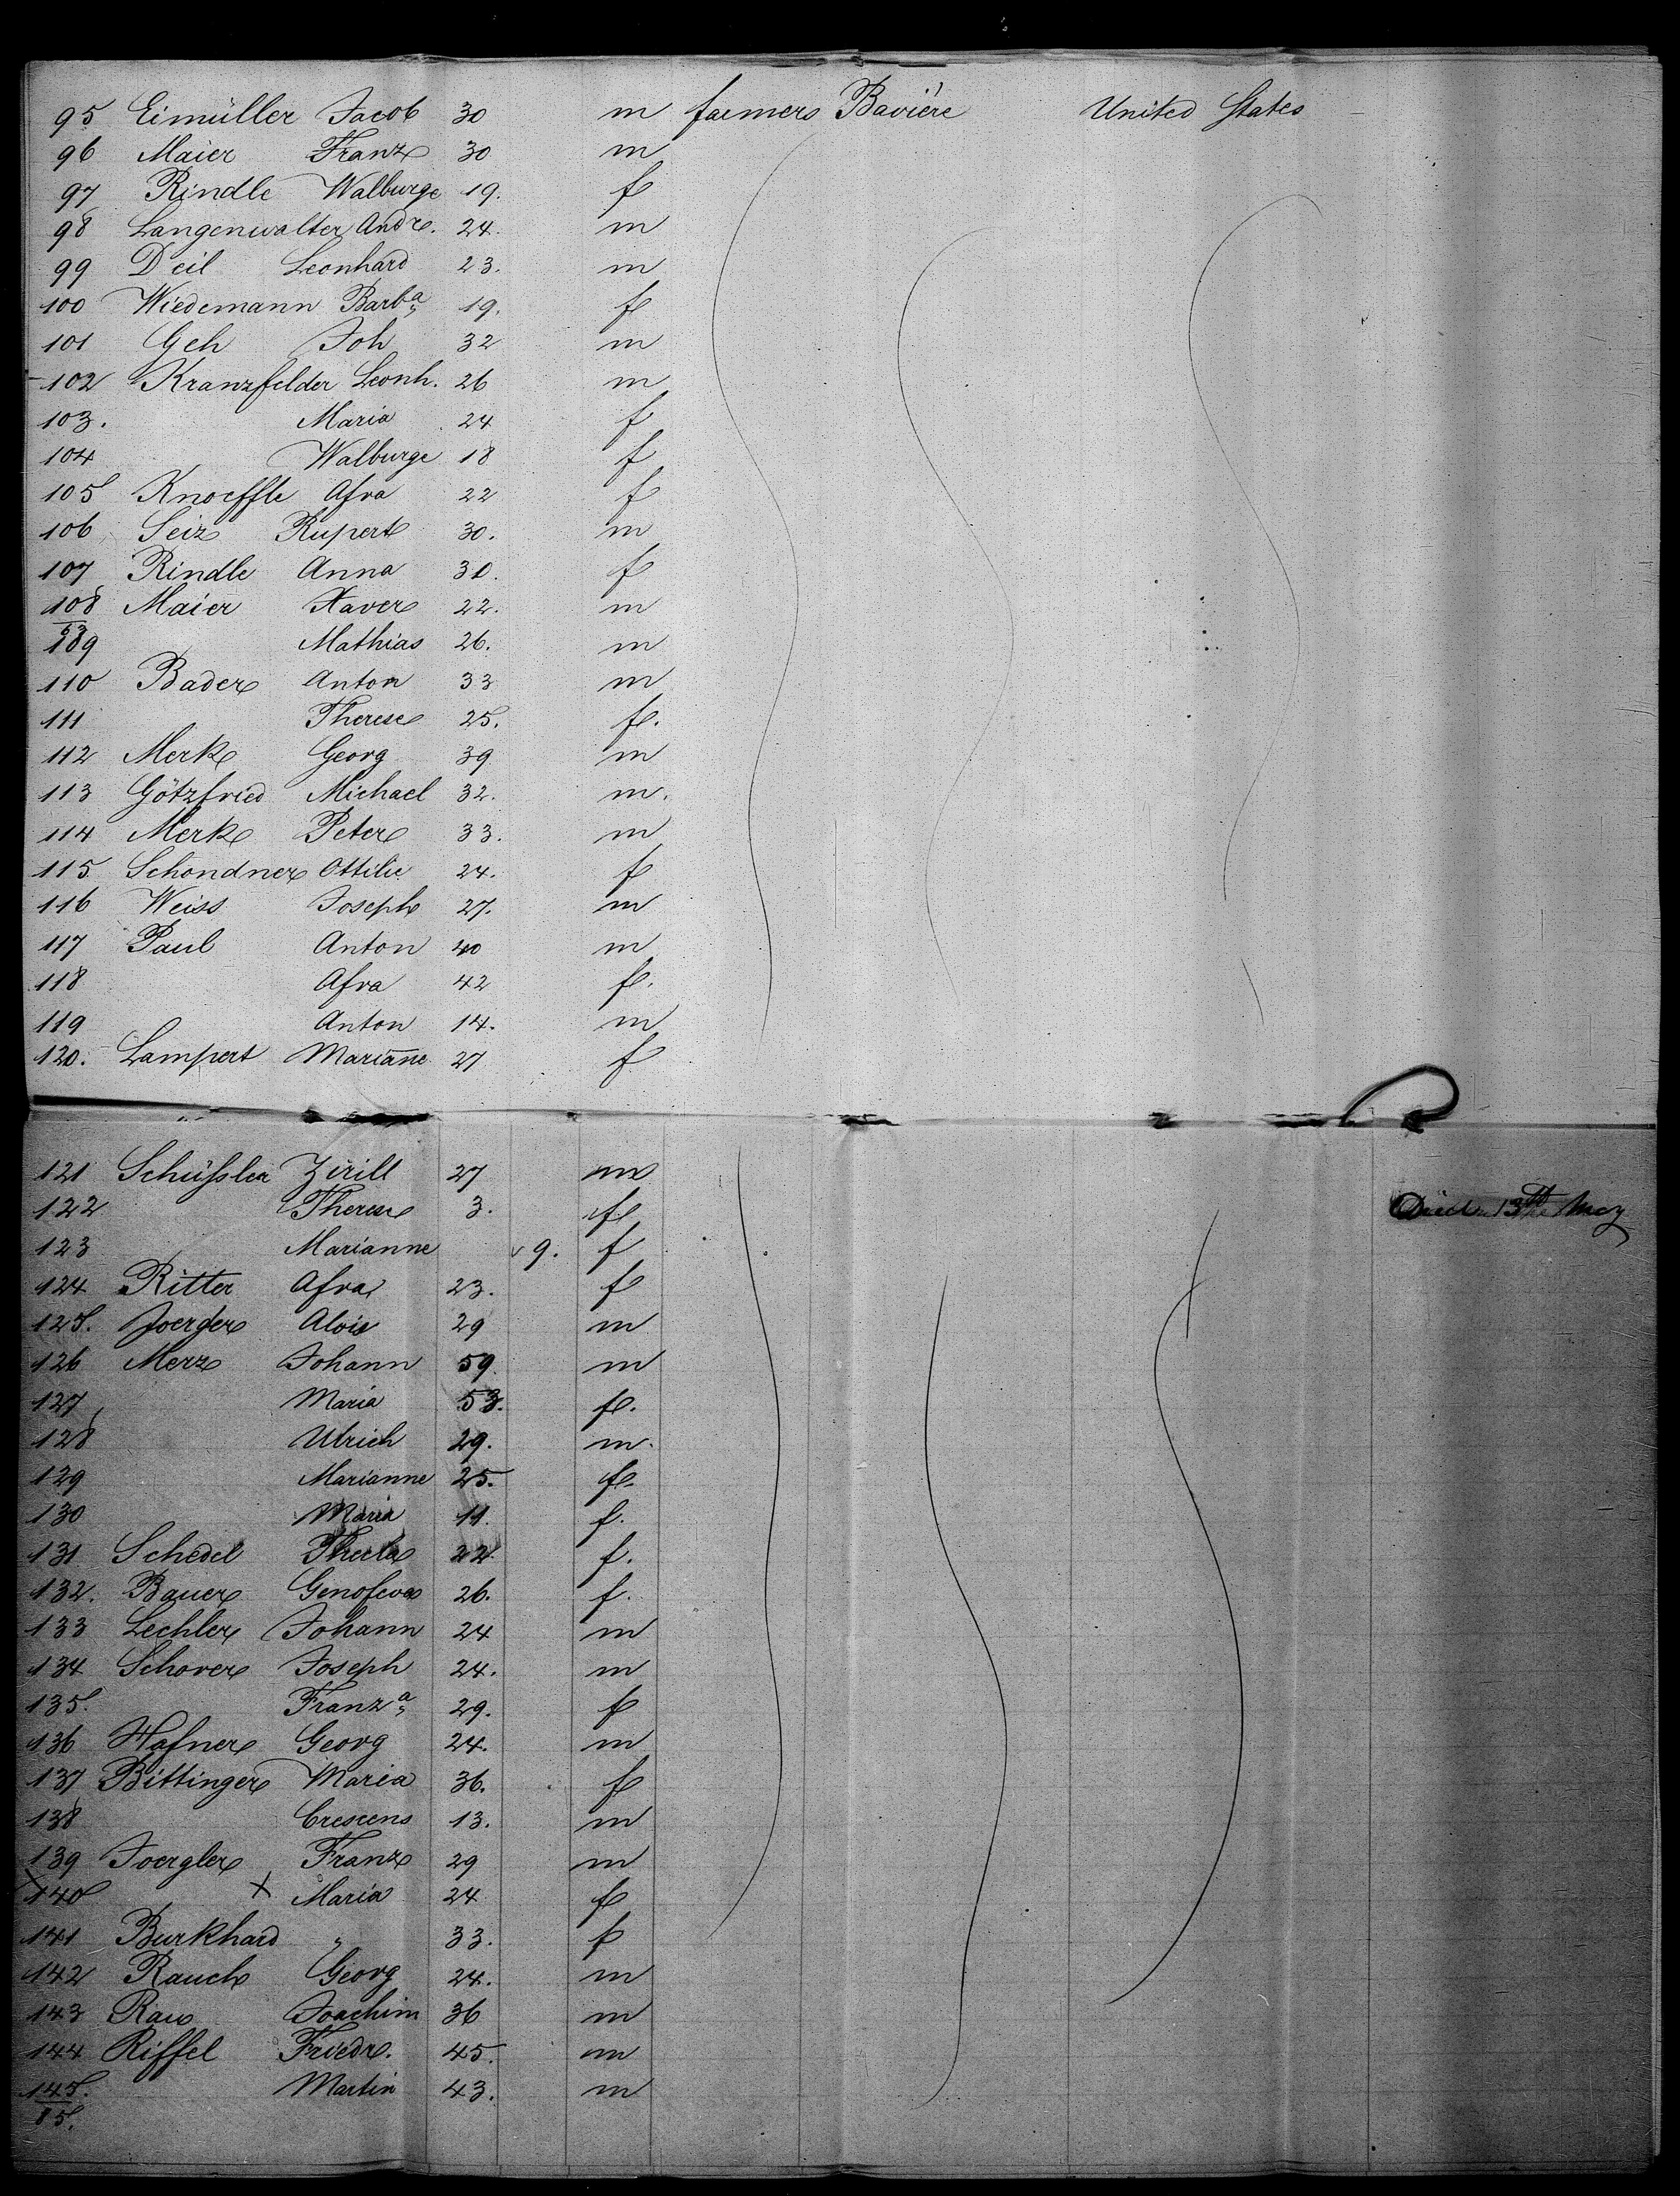 95 Eimüller Jacob 30 m farmers Bavière United States
96 Maier Franz 30 m
97 Rindle Walburge 19. f
98 Langenwalter Andr. 24. m
99 Deil Leonhard 23. m
100 Wiedemann Barbª 19. f
101 Geh Joh 32 m
102 Kranzfelder Leonh. 26 m
103. Maria 24 f
104 Walburge 18 f
105 Knoeffle Afra 22 f
106 Seiz Rupert 30. m
107 Rindle Anna 30. f
108 Maier Xaver 22. m
53
109 Mathias 26. m
110 Bader Anton 33 m
111 Therese 25. f.
112 Merk Georg 39 m
113 Götzfried Michael 32. m.
114 Merk Peter 33. m
115. Schondner Ottilie 24. f
116 Weiss Joseph 27. m
117 Paul Anton 40 m
118 Afra 42 f.
119 Anton 14. m
120. Lampert Marianne 27 f
121 Schüssler Zirill 27 m
122 Therese 3. f Died 13th May
123 Marianne 9. f
124 Ritter Afra 23. f
125. Joerger Alois 29 m
126 Merz Johann 59. m
127 Maria 53. f.
128 Ulrich 29. m.
129 Marianne 25. f.
130 Maria 11. f.
131 Schedel Thecla 22. f.
132. Bauer Genofeva 26. f.
133 Lechler Johann 24 m
134 Schorer Joseph 24. m
135. Franzª 29. f
136 Hafner Georg 24. m
137 Bittinger Maria 36. f
138 Crescens 13. m
139 Joergler Franz 29 m
X 140 X Maria 24 f
141 Burkhard " 33. f
142 Rauch Georg 24. m
143 Rau Joachim 36 m
144 Riffel Friedr. 45. m
145. Martin 43. m
85.